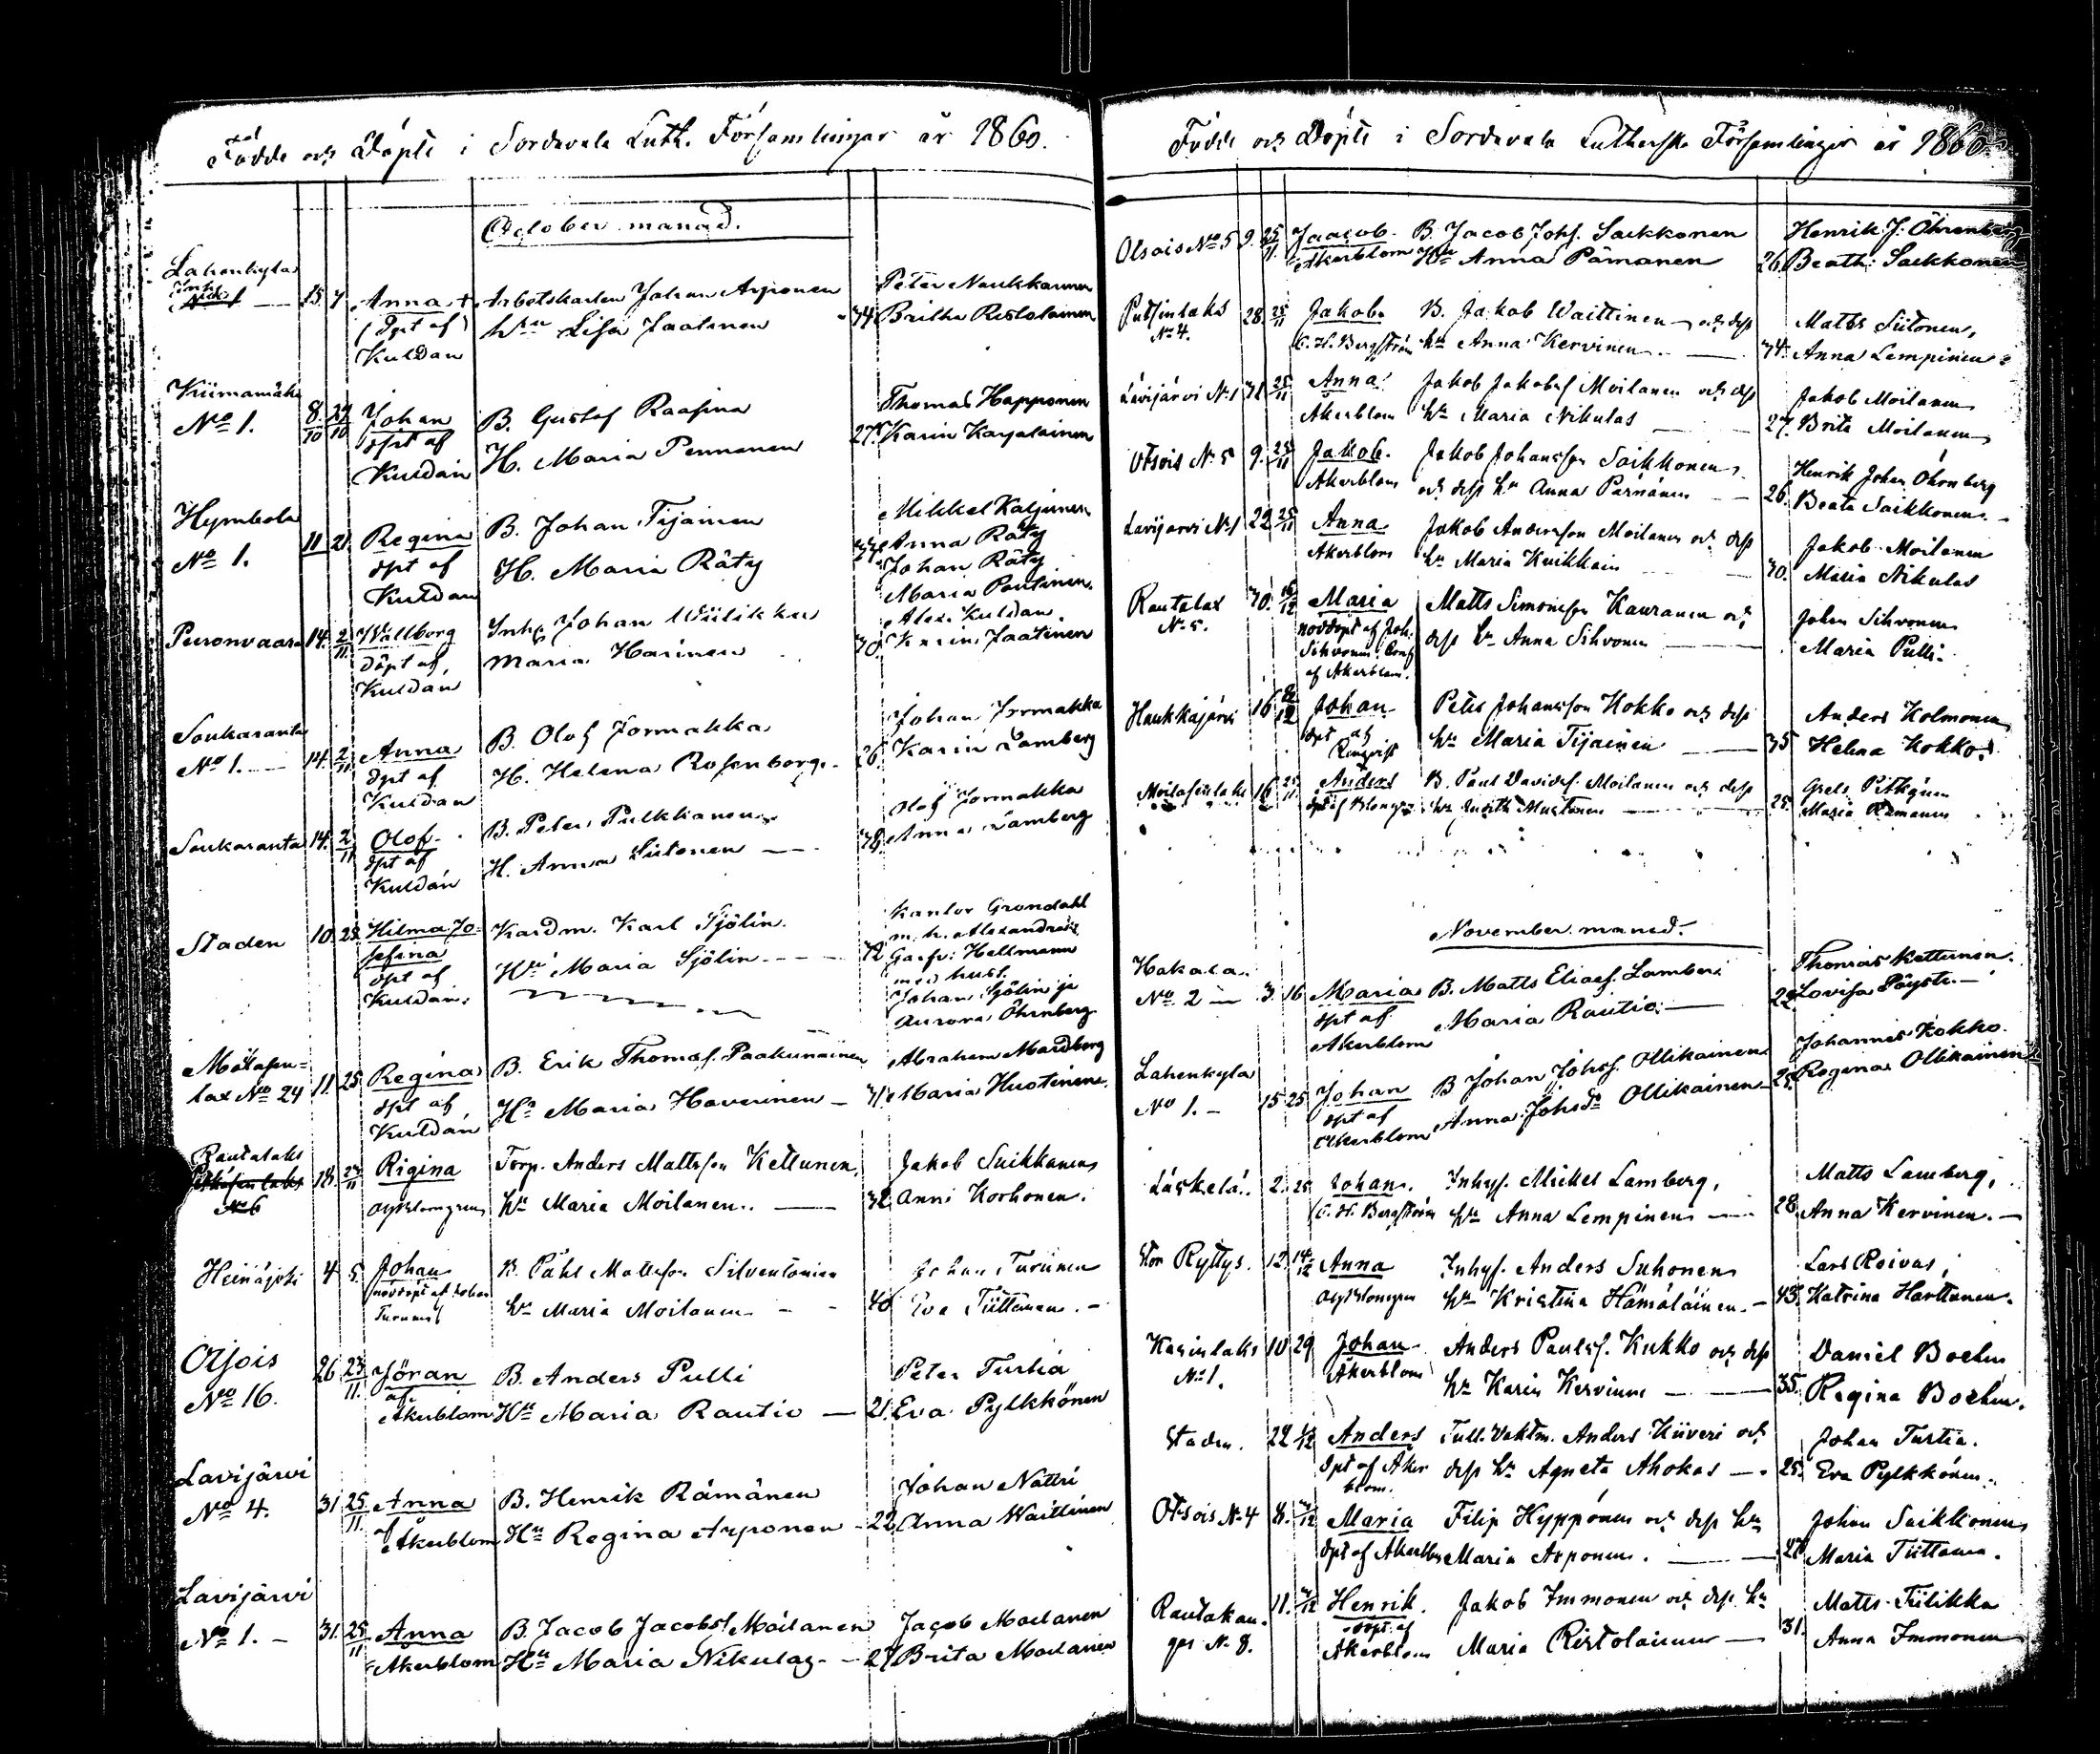 Födde och Döpte i Sordavala Luth. Församlingar år 1860.
October månad.
Lahenkyla
15. 7 Anna + Arbetskarlen Johan Arponen Peter Naukkarinen
(dpt af) hru Lisa Jaatinen 34 Britha Ristolainen
Kuldan
Kiimamäki Thomas Happonen
No 1. 8/10 29/10 Johan B. Gustaf Raasina 27. Karin Karjalainen
dpt af H. Maria Pennanen
Kuldan
Hymbola Mikkel Kaljunen
No 1. 11 21 Regina B. Johan Tijainen Anna Räty
dpt af H. Maria Räty Johan Räty
Kuldan Maria Pautinen
Alex. Kuldan
Puronvaara 14. 2/11 Wallborg Inh. Johan Wiilikka 30. Karin Jaatinen
döpt af Maria Harinen
Kuldan
Soukaranta Johan Jormakka
No 1. 14. 2/11 Anna B. Olof Jormakka 26. Karin Lamberg
dpt af H. Helena Rosenborg.
Kuldan
Olof Jormakka
Soukaranta 14. 2/11 Olof. B. Peter Pulkkanen 38. Anna Lamberg
dpt af H. Anna Siitonen
Kuldan
Kantor Grondahl
Staden 10. 28. Hilma Jo- Kardm. Karl Sjölin. m. h. Alexandra
sefina Hru Maria Sjölin Garfv: Hellmann
dpt af med hust.
Kuldan. Johan Sjölin
Aurora Öhrnberg
Mötäsen- Abraham Mardberg
lax No 24 11. 25. Regina B. Erik Thomasf. Paakunainen
dpt af Ha Maria Haverinen 31. Maria Huotinen
Kuldan
Rautalaks
No 6 18. 27/11 Rigina Torp. Anders Mattsson Kettunen, Jakob Suikkanen
af Blomgren hn Maria Moilanen. 32. Anni Korhonen.
Heinäjoki 4 5. Johan B. Påhl Mattsson Silventoinen Johan Turunen
nöddöpt af Johan hn Maria Moilanen 40. Eva Tiittanen.
Turunen
Otsois 26 23/11. Jöran B. Anders Pulli Peter Turtia
No 16. af Åkerblom Hru Maria Rautio 21. Eva Pylkkönen
Lavijärvi
No 4. 31 25/11. Anna B. Henrik Rämänen Johan Nattri
af Åkerblom Hru Regina Arponen 22. Anna Waittinen
Lavijärvi
No 1. 31. 25/11 Anna B. Jacob Jacobsf Moilanen Jacob Moilanen
Åkerblom Hru Maria Nikulas 27 Brita Moilanen
Födde och Döpte i Sordavala Lutherska Församlingen år 1860.
Otsois No 5 9. 25/11. Jaacob. B. Jacob Johs. Saikkonen Henrik J. Öhrenberg
Åkerblom Hru Anna Pärnänen 26. Beath: Saikkonen
Putsinlaks
No 4. 28. 25/11 Jakob. B. Jakob Waittinen och dess Matts Siitonen,
C. H. Bergström hn Anna Kervinen. 34. Anna Lempinen
Lavijärvi No 1 31 25/11 Anna Jakob Jakobsf Moilanen och dess Jakob Moilanen
Åkerblom hn Maria Nikulas 27. Brita Moilanen
Otsois No 5 9. 25/11 Jakob. Jakob Johansson Saikkonen Henrik Johan Öhrnberg
Åkerblom och dess hn Anna Pärnänen 26. Beata Saikkonen.
Lavijarvi No 1 22 25/11 Anna Jakob Andersson Moilanen och dess Jakob Moilanen
Åkerblom hn Maria Kuikkain 30. Maria Nikulas
Rautalax
No 5. 30. 16/12 Maria Matts Simonsson Kauranen och Johan Sihvonen
nöddöpt af Joh. dess hn Anna Sihvonen Maria Pulli.
Sihvonen. Conf
af Åkerblom.
Haukkajärvi 16 Johan Peter Johansson Kokko och dess Anders Kolmonen
dpt af hn Maria Tijainen 35 Helena Kokko.
Moilasenlaks 16 25/11 Anders B. Paul Davidsf. Moilanen och dess Grels Pitkänen
dpt af Blomgren hn Judith Mustonen 25. Maria Rämänen
November månad.
Hakala Thomas Kettunen.
No 2 3. 16 Maria B. Matts Eliasf. Lamberi 22. Lovisa Päystr.
dpt af Maria Rautio
Åkerblom
Lahenkyla Johannes Kokko.
No 1. 15 25. Johan B Johan Johsf. Ollikainen 25. Regina Ollikainen
dpt af Anna Johsdr Ollikainen
Åkerblom
Läskelä. 2. 25. Johan. Inhys. Mickel Lamberg, Matts Lamberg,
C. H. Bergström hn Anna Lempinen 28. Anna Kervinen.
Stor Ryttys. 12. 14/12 Anna Inhys. Anders Suhonen Lars Roivas,
af Blomgren hn Kristina Hämäläinen. 43. Katrina Harttunen.
Karinlaks 10 29 Johan Anders Paulsf. Kukko och dess Daniel Boehm
No 1. Åkerblom hn Karin Kervinen 35. Regina Boehm.
Staden. 22 Anders Tull. Vaktm. Anders Kiiveri och Johan Turtia.
dpt af Åker dess hn Agneta Ahokas 25. Eva Pylkkönen.
blom.
Otsois No 4 8. Maria Filip Hyppönen och dess hn Johan Saikkonen
dpt af Åkerblom Maria Arponen. 27 Maria Tiittanen.
Rautakan- 11. Henrik. Jakob Immonen och dess hn Matts Tiilikka
gas No 8. döpt af Maria Ristolainen 31. Anna Immonen
Åkerblom